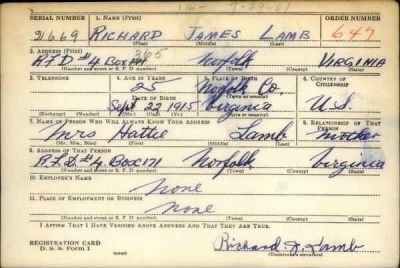 SERIAL NUMBER 1. NAME (Print) ORDER NUMBER
RICHARD JAMES LAMB 647
(First) (Middle) (Last)
2. ADDRESS (Print) 265
R.F.D #4 Box Norfolk VIRGINIA
(Number and street or R. F. D. number) (Town) (County) (State)
3. TELEPHONE 4. AGE IN YEARS 5. PLACE OF BIRTH 6. COUNTRY OF CITIZENSHIP
25 Norfolk Co.
DATE OF BIRTH
Sept 22 1915 Virginia U.S.
(Exchange) (Number) (Mo.) (Day) (Yr.) (State or country)
7. NAME OF PERSON WHO WILL ALWAYS KNOW YOUR ADDRESS 8. RELATIONSHIP OF THAT PERSON
Mrs Hattie Lamb Mother
(Mr., Mrs., Miss) (First) (Middle) (Last)
9. ADDRESS OF THAT PERSON
R.F.D #4 Box 171 Norfolk Virginia
(Number and street or R. F. D. number) (Town) (County) (State)
10. EMPLOYER'S NAME
None
11. PLACE OF EMPLOYMENT OR BUSINESS
None
(Number and street or R. F. D. number) (Town) (County) (State)
I AFFIRM THAT I HAVE VERIFIED ABOVE ANSWERS AND THAT THEY ARE TRUE.
REGISTRATION CARD
D. S. S. Form 1 Richard J. Lamb
(Registrant's signature)